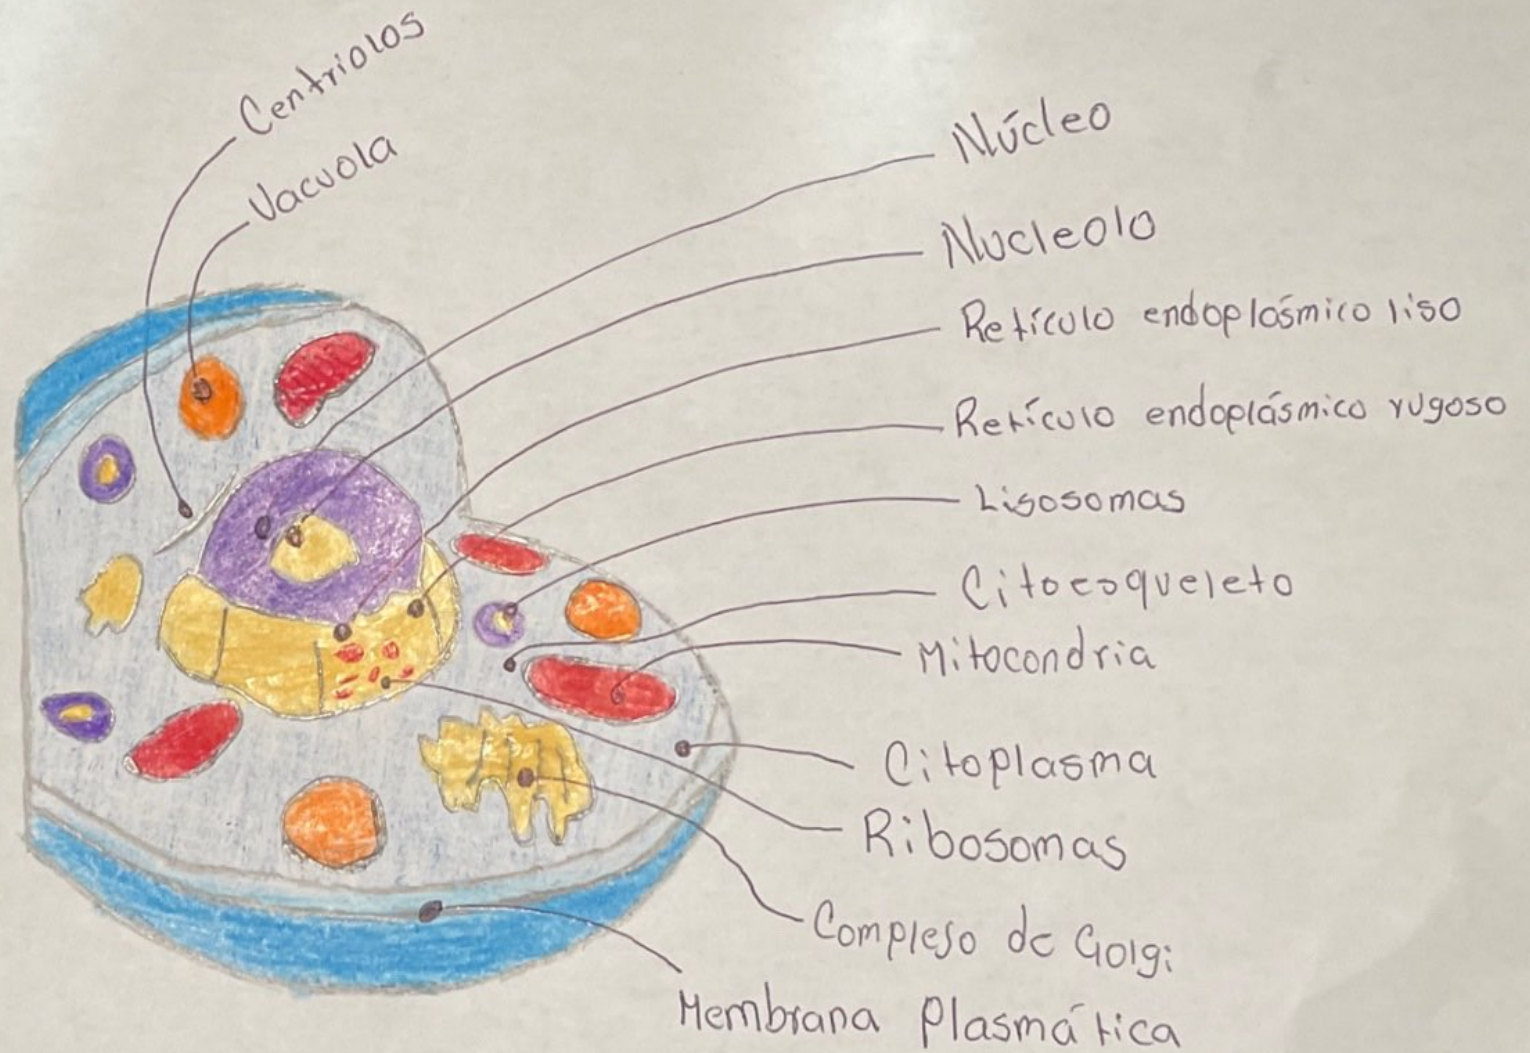 Centriolos
Vacuola
Núcleo
Nucleolo
Retículo endoplásmico liso
Retículo endoplásmico rugoso
Lisosomas
Citoesqueleto
Mitocondria
Citoplasma
Ribosomas
Complejo de Golgi
Membrana Plasmática